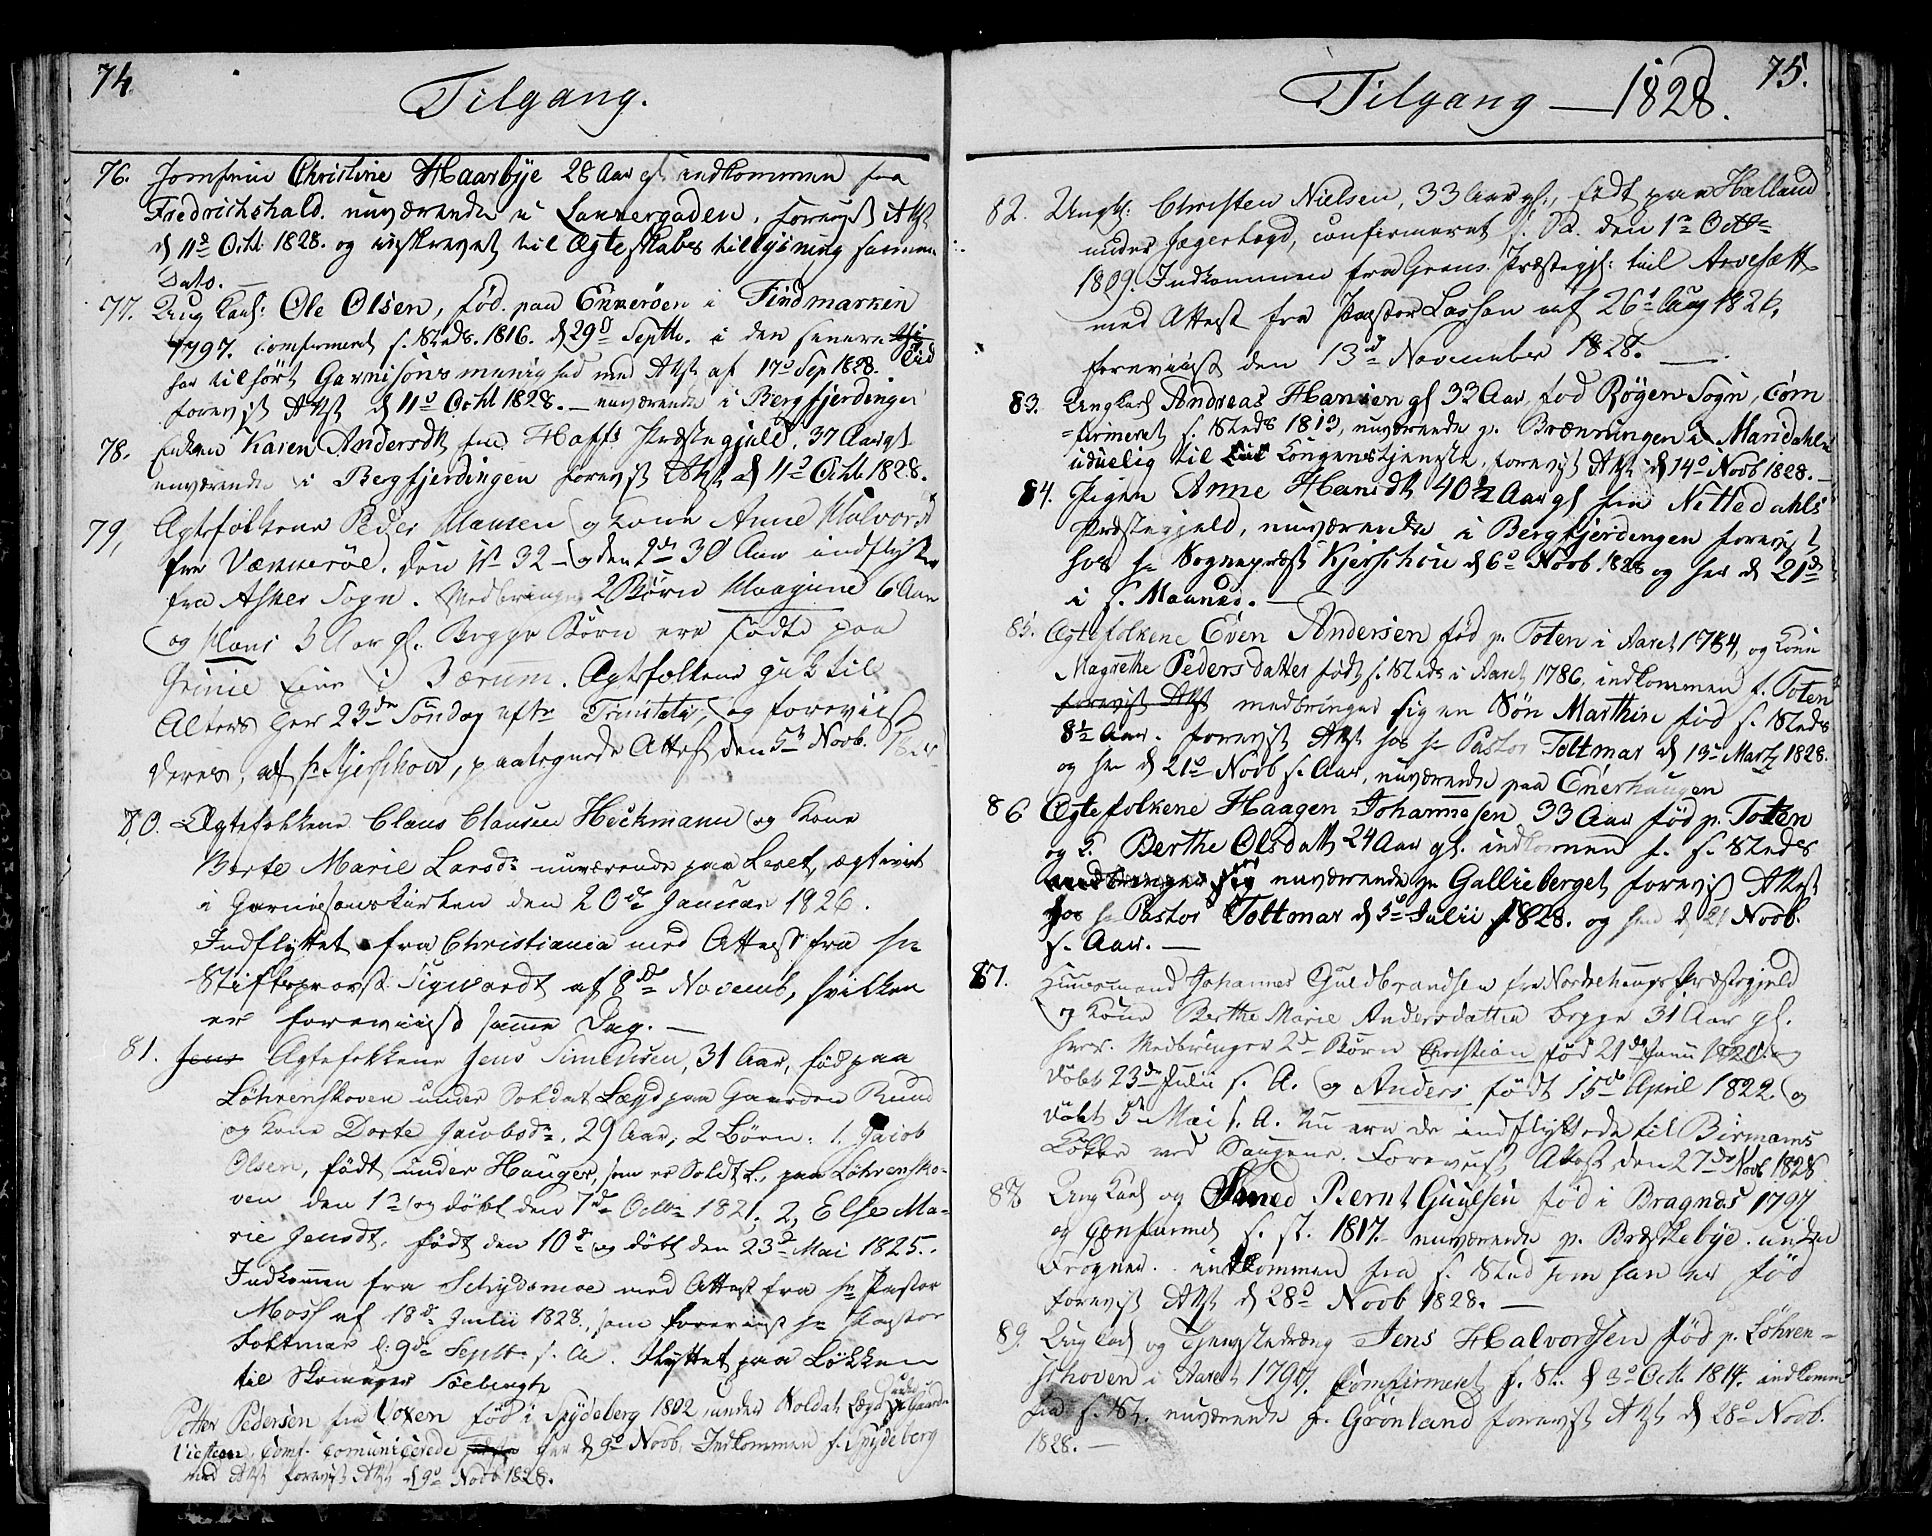 74.
Tilgang.
76. Jomfrue Christine Haarbÿe 28 Aar gl indkommen fra
Fredrichshald. nuværende i Lannergaden, forevist Attst
d 11d Octb 1828. og indskrevet til Ægteskabs tillysning samme
Dato.
77. Ung Karl: Ole Olsen, fød. paa Ennerøen i Findmarken
1797. Comfirmeret s. Steds. 1816. d 29d Septbr. i den senere Tid
har tilhørt Garnisons menighed med Attst af 17d Sep 1828.
forevist Attst d 11d Octbl 1828. – nuværende i Bergfjerdingen
78. Enken Karen Andersdtr fra Hoffs Præstegjeld, 37 Aar gl
nuværende i Bergfjerdingen forevist Attst d 11d Octb 1828.
79, Ægtefolkene Peder Hansen og Kone Anne Halvorsd
fra Vækkerøe. den 1st 32 – og den 2de 30 Aar indflyttet
fra Asker Sogn. Medbringer 2 Børn Maagine 6 Aar
og Hans 3 Aar gl. Begge Børn ere fødte paa
Grinie Eie i Bærum. Ægtefolkene gik til
Alters her 23de Søndag efter Trinitatis, og foreviist
deres, af Hr Kjerschow, paategnede Attest den 5te Novb. 1828
80. Ægtefolkene Claus Clausen Höckmann og Kone
Berte Marie Larsdr nuværende paa Leret, ægteviet
i Garnisonskirken den 20de Januar 1826.
Indflyttet fra Christiania med Attest fra Hr
Stiftsprovst Sigwardt af 8de Novemb, hvilken
er foreviist samme Dag. —
81. Jens Ægtefolkene Jens Simensen, 31 Aar, fød paa
Løhrenskoven under Soldat Lægd paa Gaarden Rund
og Kone Dorte Jacobsdr, 29 Aar, 2 Børn: 1. Jacob
Olsen, født under Hauger, som er Soldt L., paa Løhrensko-
ven den 1n og døbt den 7de Octbr 1821; 2, Else Ma-
rie Jensdt. født den 10de og døbt den 23d Mai 1825.
Indkommen fra Schydsmoe med Attest fra Hr Pastor
Moss af 18d Julii 1828, som foreviist Hr Pastor
Foltmar d: 9de Septbr s. A. Flyttet paa Løkken
til
Petter Pedersen fra Voxen fød i Spydeberg 1802, under Soldat Lægd under Gaarden
comf. Comunicerede her d 9d Novb. Indkommen f. Spydeberg
med Attst forevist Attst d 9d Novb 1828.
Tilgang — 1828.
75.
82. Ungkl: Christen Nielsen, 33 Aar gl, født paa Halland
under confirmeret s. Sd. den 1n Octbr
1809. Indkommen fra Grans Præstegjl: til Arvesætt
med Attest fra Pastor Lassen af 26d Aug 1826,
foreviist den 13d November 1828. —
83. Ung Karl Andreas Hansen gl 33 Aar, fød Røgen Sogn, Com
=firmeret s. Steds 1813, nuværende p. Brænnungen i Maridahlen
uduelig til Kongens tjeneste, forevist Attst d 14d Novb 1828. –
84. Pigen Anne Hansdtr 40½ Aar gl fra Nittedahls
Præstegjeld, nuværende i Bergfjerdingen forevist
hos Hr Sognepræst Kjerschou d 6d Novb. 1828 og her d 21d
i s. Maaned. —
85. Ægtefolkene Even Andersen fød p. Toten i Aaret 1784, og Kone
Magrethe Pedersdatter født s. Steds i Aaret 1786, indkommen f. Toten
forevist Attst medbringer sig en Søn Marthin fød s. Steds
8½ Aar. forevist Attst hos Hr Pastor Foltmar d 13d Marti 1828.
og her d 21d Novb s. Aar, nuværende paa Enerhaugen
86 Ægtefolkene Haagen Johannesen 33 Aar fød p. Toten
og K. Berthe Olsdatt. 24 Aar gl. indkommen f. s. Steds
medbringer sig nuværende p. Gallieberget forevist Attst
hos Hr Pastor Foltmar d 5d Julii 1828. og her d 21 Novb.
s. Aar. —
87. Huusmand Johannes Guldbrandsen fra Norderhougs Præstegjeld
og Kone Berthe Marie Andersdatter begge 31 Aar gl.
Medbringer 2d Børn Christian fød 21de Junii 1820. og
døbt 23de Julii s. A. og Anders født 15de April 1822 og
døbt 5te Mai s. A. Nu ere de indflyttede til Birmans
Løkke ved Saugene. Foreviist Attest den 27de Novb 1828
88 Ung Karl og Smed Bernt Guulsen fød i Bragnes 1797
og Confirmed s. st. 1817. nuværende p. Briskebÿe under
Frogner. indkommen fra s. Sted som han er fød
forevist Attst d 28d Novb 1828. —
89. Ung Karl og Tjenestedræng Jens Halvordsen fød p. Løhren-
schoven i Aaret 1797, Comfirmeret s. St. d 3d Octb 1814. indkomm
fra s. St. nuværende p. Grønland forevist Attst d 28d Novb.
1828. —